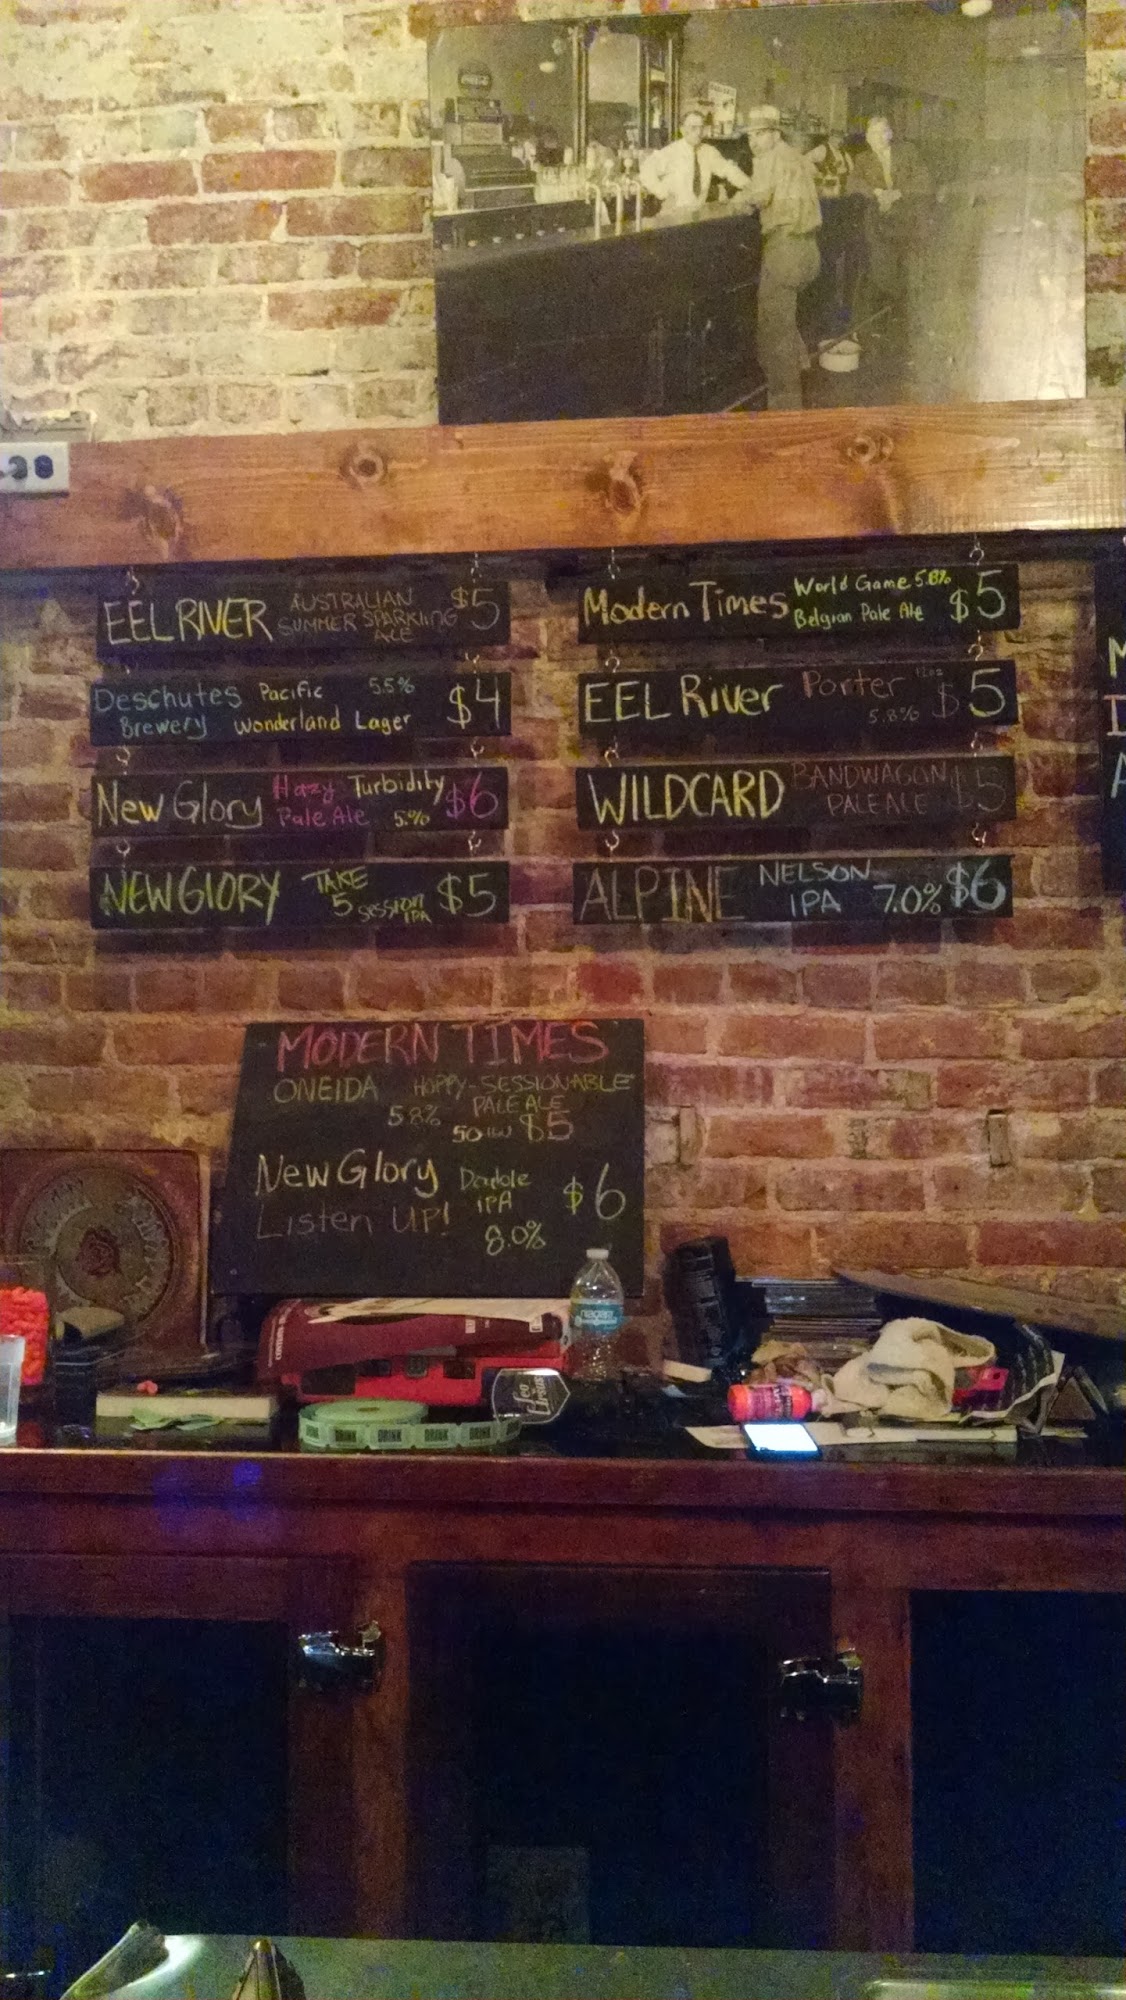 EEL RIVER AUSTRALIAN SUMMER SPARKLING ALE $5
Deschutes Brewery Pacific Wonderland Lager 5.5% $4
New Glory Hazy Pale Ale Turbidity 5.% $6
NEW GLORY TAKE 5 SESSION IPA $5
Modern Times World Game 5.8% Belgian Pale Ale $5
EEL River Porter 12oz 5.8% $5
WILDCARD BANDWAGON PALE ALE $5
ALPINE NELSON IPA 7.0% $6
MODERN TIMES
ONEIDA HOPPY-SESSIONABLE
PALE ALE
5.8% $5
New Glory Double
IPA $6
Listen UP!
8.0%
DRINK DRINK DRINK DRINK